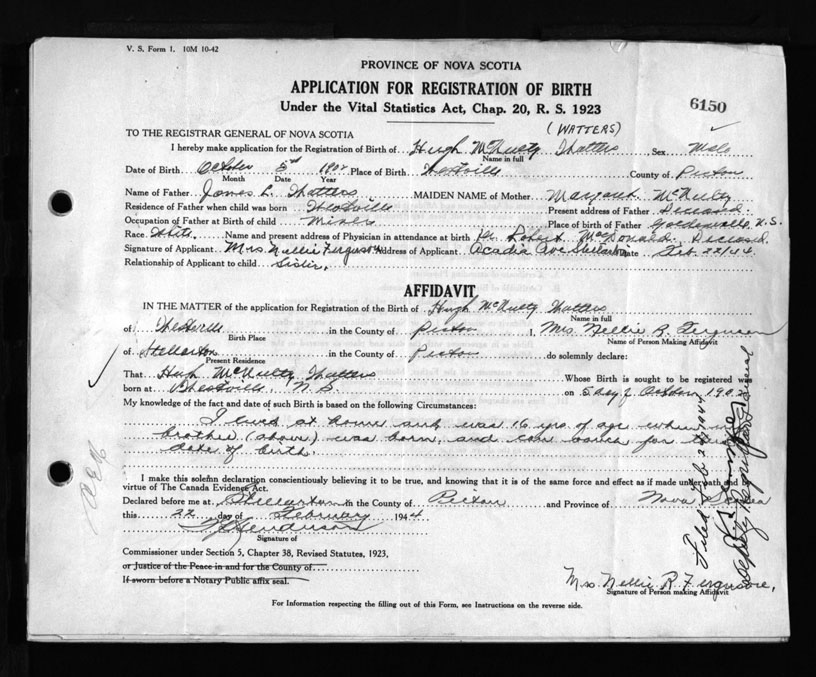 V. S. Form 1. 10M 10-42
PROVINCE OF NOVA SCOTIA
APPLICATION FOR REGISTRATION OF BIRTH
Under the Vital Statistics Act, Chap. 20, R. S. 1923
6150
(WATTERS)
TO THE REGISTRAR GENERAL OF NOVA SCOTIA
I hereby make application for the Registration of Birth of Hugh McNulty Watters Sex Male
Name in full
Date of Birth October 5 1902 Place of Birth County of Pictou
Month Date Year
Name of Father James Watters MAIDEN NAME of Mother Margaret McNulty
Residence of Father when child was born Present address of Father Deceased.
Occupation of Father at Birth of child Miner Place of birth of Father Goldenville N.S.
Race. White. Name and present address of Physician in attendance at birth Dr Robert McDonald. Deceased.
Signature of Applicant Mrs Nellie Ferguson Address of Applicant Acadia Ave Stellarton Date Feb. 22/44
Relationship of Applicant to child Sister.
AFFIDAVIT
IN THE MATTER of the application for Registration of the Birth of Hugh McNulty Watters
Name in full
of in the County of Pictou I, Mrs Nellie R. Ferguson
Birth Place Name of Person Making Affidavit
of Stellarton in the County of Pictou do solemnly declare:
Present Residence
That Hugh McNulty Watters Whose Birth is sought to be registered was
born at N.S. on 5 day of October 1902
My knowledge of the fact and date of such Birth is based on the following Circumstances:
I lived at home and was 16 yrs of age when my
brother (above) was born, and can vouch for this
date of birth.
I make this solemn declaration conscientiously believing it to be true, and knowing that it is of the same force and effect as if made under oath and by
virtue of The Canada Evidence Act.
Declared before me at Stellarton in the County of Pictou and Province of Nova Scotia
this 22 day of February 1944
Henderson
Signature of
Commissioner under Section 5, Chapter 38, Revised Statutes, 1923,
or Justice of the Peace in and for the County of
If sworn before a Notary Public affix seal.
Mrs Nellie R. Ferguson.
Signature of Person making Affidavit
For Information respecting the filling out of this Form, see Instructions on the reverse side.
Filed Feb 1944
Deputy Registrar General